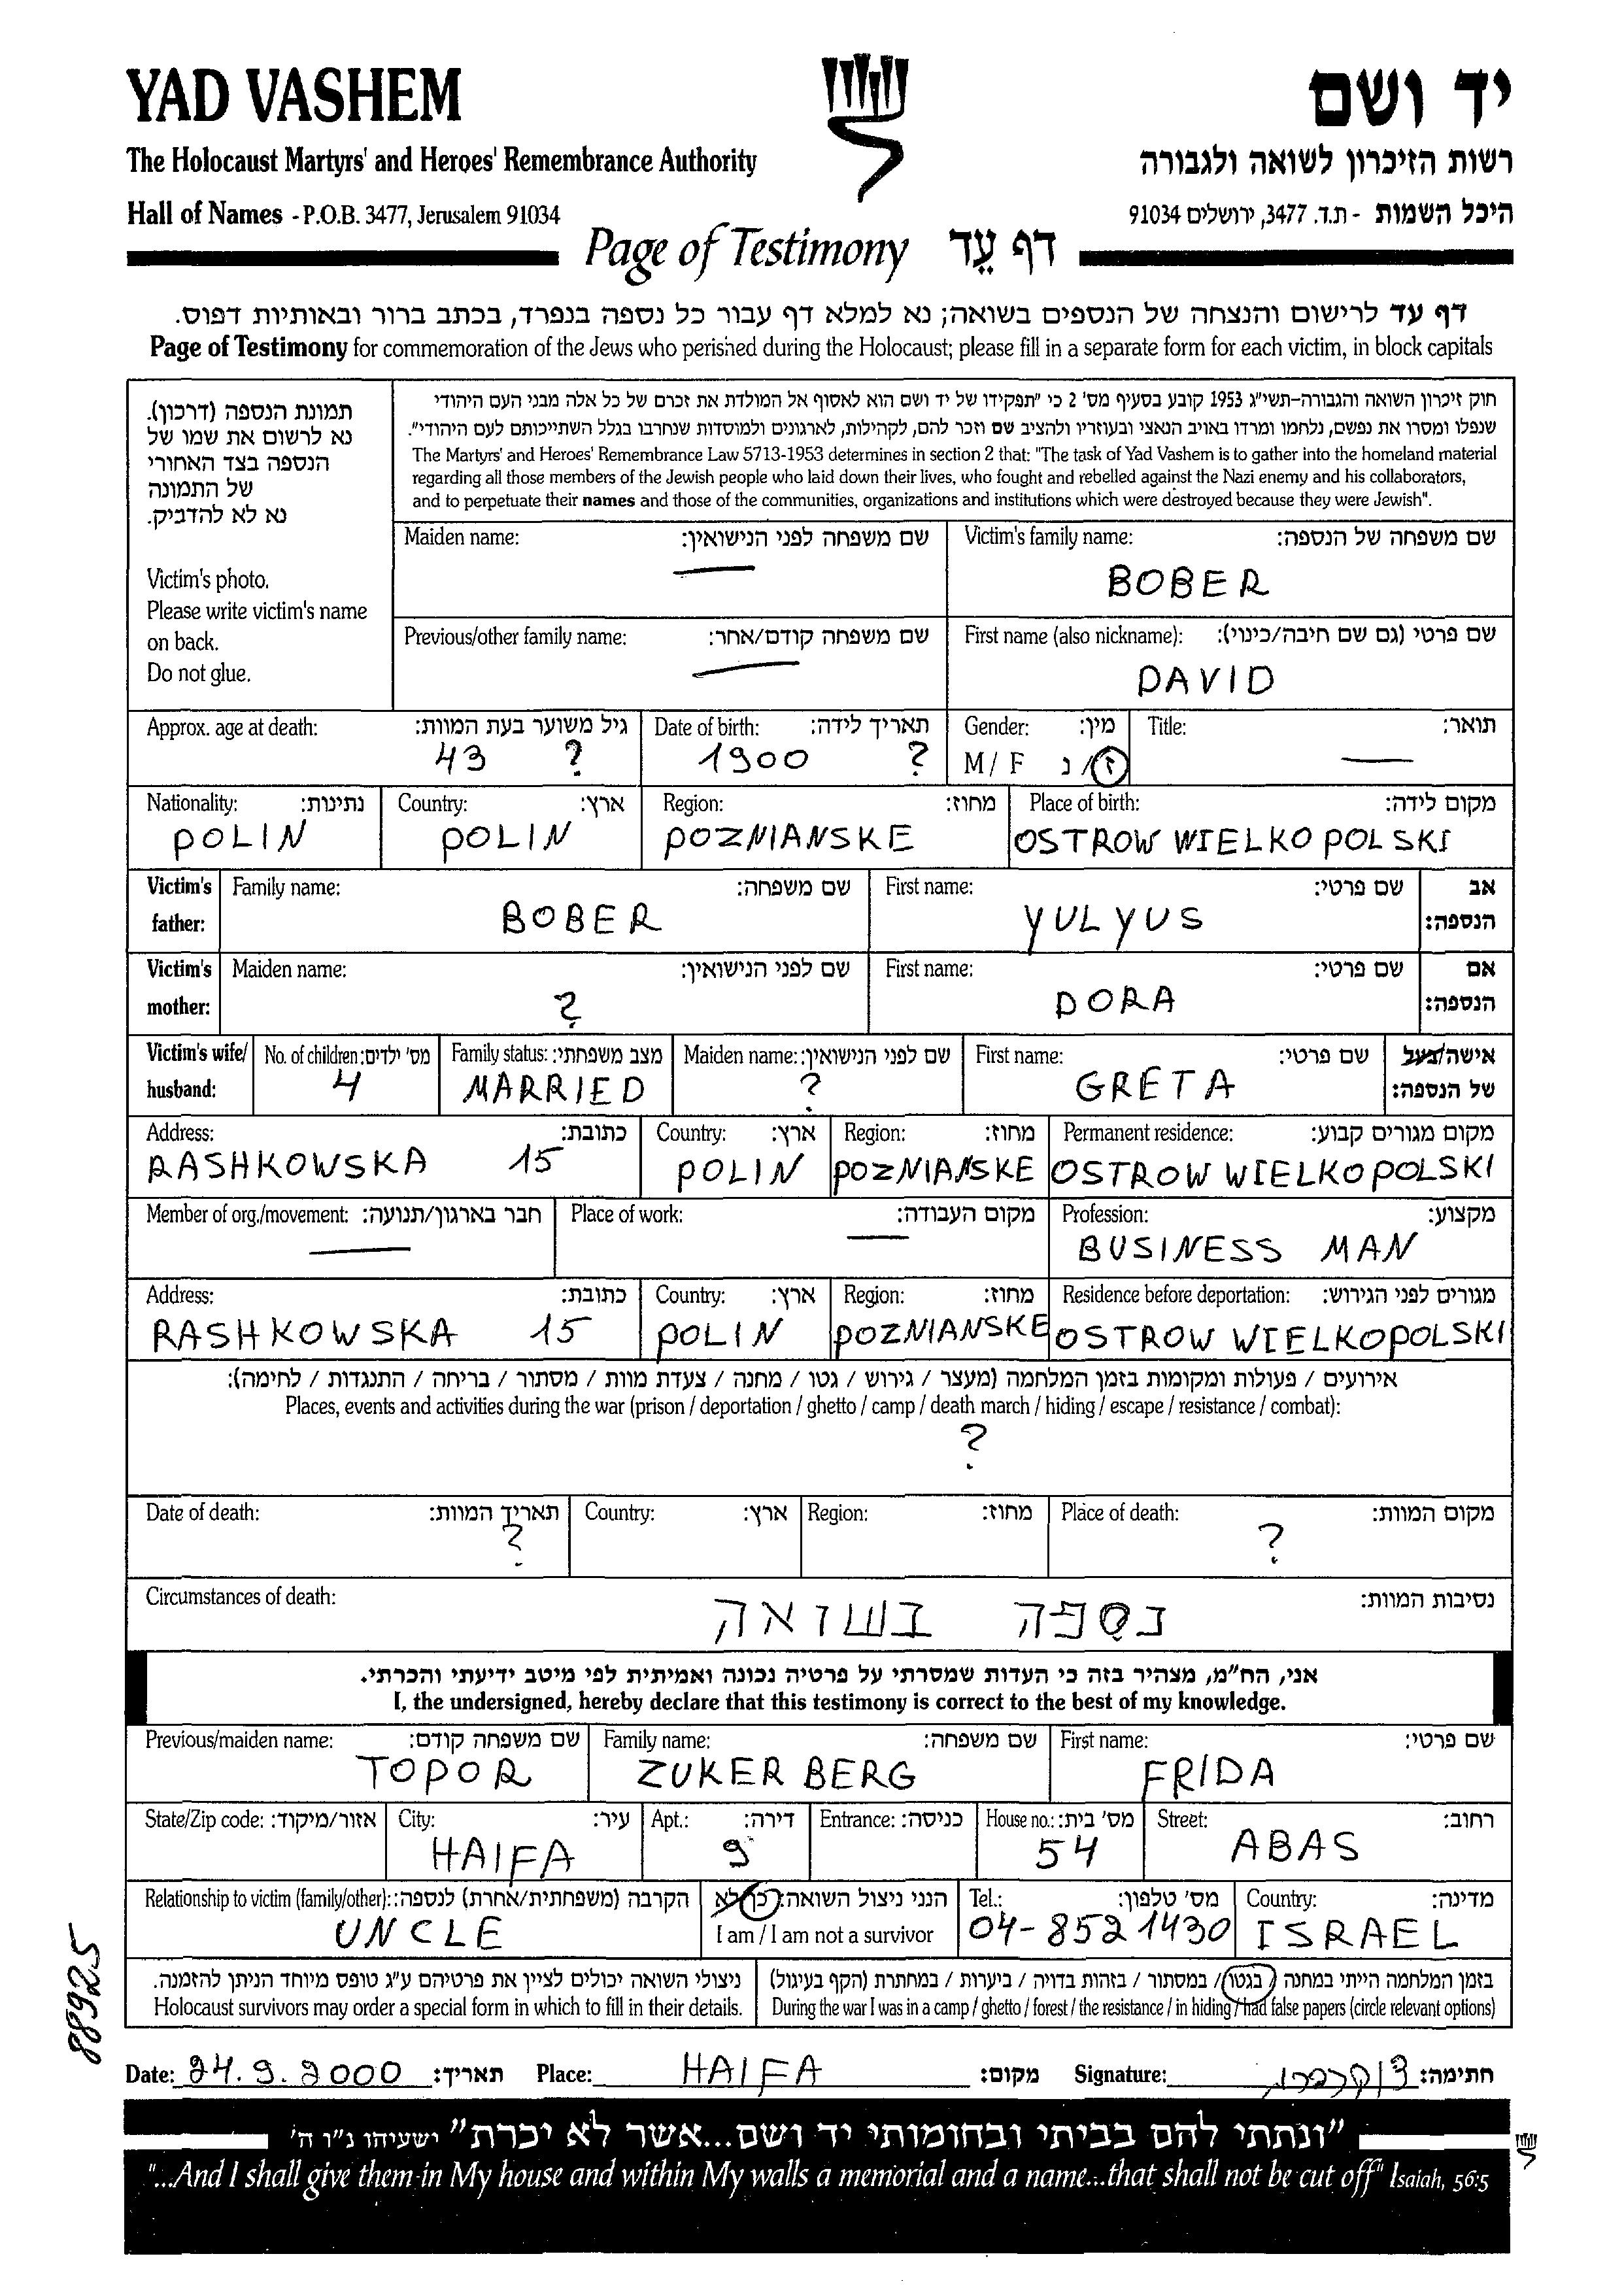 YAD VASHEM
יד ושם
The Holocaust Martyrs' and Heroes' Remembrance Authority
רשות הזיכרון לשואה ולגבורה
Hall of Names - P.O.B. 3477, Jerusalem 91034
היכל השמות - ת.ד. 3477, ירושלים 91034
Page of Testimony דף עֵד
דף עד לרישום והנצחה של הנספים בשואה; נא למלא דף עבור כל נספה בנפרד, בכתב ברור ובאותיות דפוס.
Page of Testimony for commemoration of the Jews who perished during the Holocaust; please fill in a separate form for each victim, in block capitals
תמונת הנספה (דרכון).
נא לרשום את שמו של
הנספה בצד האחורי
של התמונה
נא לא להדביק.
Victim's photo.
Please write victim's name
on back.
Do not glue.
חוק זיכרון השואה והגבורה-תשי"ג 1953 קובע בסעיף מס' 2 כי "תפקידו של יד ושם הוא לאסוף אל המולדת את זכרם של כל אלה מבני העם היהודי
שנפלו ומסרו את נפשם, נלחמו ומרדו באויב הנאצי ובעוזריו ולהציב שם וזכר להם, לקהילות, לארגונים ולמוסדות שנחרבו בגלל השתייכותם לעם היהודי".
The Martyrs' and Heroes' Remembrance Law 5713-1953 determines in section 2 that: "The task of Yad Vashem is to gather into the homeland material
regarding all those members of the Jewish people who laid down their lives, who fought and rebelled against the Nazi enemy and his collaborators,
and to perpetuate their names and those of the communities, organizations and institutions which were destroyed because they were Jewish".
Maiden name: שם משפחה לפני הנישואין: Victim's family name: שם משפחה של הנספה:
BOBER
Previous/other family name: שם משפחה קודם/אחר: First name (also nickname): שם פרטי (גם שם חיבה/כינוי):
DAVID
Approx. age at death: גיל משוער בעת המוות: Date of birth: תאריך לידה: Gender: מין: Title: תואר:
43 ? 1900 ? M / F ז/נ
Nationality: נתינות: Country: ארץ: Region: מחוז: Place of birth: מקום לידה:
POLIN POLIN POZNIANSKE OSTROW WIELKOPOLSKI
Victim's father: Family name: שם משפחה: First name: שם פרטי: אב הנספה:
BOBER YULYUS
Victim's mother: Maiden name: שם לפני הנישואין: First name: שם פרטי: אם הנספה:
? DORA
Victim's wife/ husband: No. of children: מס' ילדים: Family status: מצב משפחתי: Maiden name: שם לפני הנישואין: First name: שם פרטי: אישה/בעל של הנספה:
4 MARRIED ? GRETA
Address: כתובת: Country: ארץ: Region: מחוז: Permanent residence: מקום מגורים קבוע:
RASHKOWSKA 15 POLIN POZNIANSKE OSTROW WIELKOPOLSKI
Member of org./movement: חבר בארגון/תנועה: Place of work: מקום העבודה: Profession: מקצוע:
BUSINESS MAN
Address: כתובת: Country: ארץ: Region: מחוז: Residence before deportation: מגורים לפני הגירוש:
RASHKOWSKA 15 POLIN POZNIANSKE OSTROW WIELKOPOLSKI
אירועים / פעולות ומקומות בזמן המלחמה (מעצר / גירוש / גטו / מחנה / צעדת מוות / מסתור / בריחה / התנגדות / לחימה):
Places, events and activities during the war (prison / deportation / ghetto / camp / death march / hiding / escape / resistance / combat):
?
Date of death: תאריך המוות: Country: ארץ: Region: מחוז: Place of death: מקום המוות:
? ?
Circumstances of death: נסיבות המוות:
נספה בשואה
אני, הח"מ, מצהיר בזה כי העדות שמסרתי על פרטיה נכונה ואמיתית לפי מיטב ידיעתי והכרתי.
I, the undersigned, hereby declare that this testimony is correct to the best of my knowledge.
Previous/maiden name: שם משפחה קודם: Family name: שם משפחה: First name: שם פרטי:
TOPOR ZUKERBERG FRIDA
State/Zip code: אזור/מיקוד: City: עיר: Apt.: דירה: Entrance: כניסה: House no.: מס' בית: Street: רחוב:
HAIFA 9 54 ABAS
Relationship to victim (family/other): הקרבה (משפחתית/אחרת) לנספה: הנני ניצול השואה: כן/לא Tel.: מס' טלפון: Country: מדינה:
UNCLE I am / I am not a survivor 04-8521430 ISRAEL
ניצולי השואה יכולים לציין את פרטיהם ע"ג טופס מיוחד הניתן להזמנה.
Holocaust survivors may order a special form in which to fill in their details.
בזמן המלחמה הייתי במחנה / בגטו / במסתור / בזהות בדויה / ביערות / במחתרת (הקף בעיגול)
During the war I was in a camp / ghetto / forest / the resistance / in hiding / had false papers (circle relevant options)
88925
Date: 24.9.2000 תאריך: Place: HAIFA מקום: Signature: צוקרברג חתימה:
"ונתתי להם בביתי ובחומותי יד ושם...אשר לא יכרת" ישעיהו נ"ו ה'
"...And I shall give them in My house and within My walls a memorial and a name...that shall not be cut off" Isaiah, 56:5